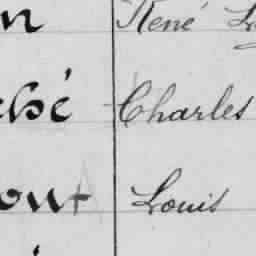 n René
ché Charles
out Louis